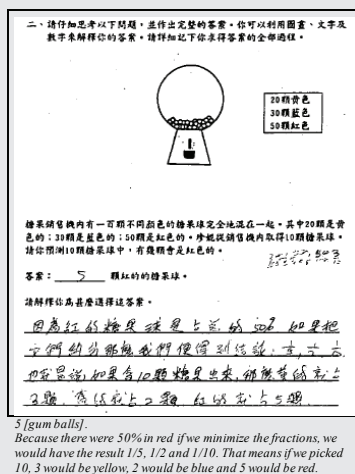 二、請仔細思考以下問題，並作出完整的答案。你可以利用圖畫、文字及
數字來解釋你的答案。請詳細記下你求得答案的全部過程。
20顆黃色
30顆藍色
50顆紅色
糖果銷售機內有一百顆不同顏色的糖果球完全地混在一起。其中20顆是黃
色的；30顆是藍色的；50顆是紅色的。珍妮從銷售機內取得10顆糖果球。
請你預測10顆糖果球中，有幾顆會是紅色的。
答案： 5 顆紅的的糖果球。
請解釋你為甚麼選擇這答案。
因為紅的糖果球是占的50% 如果把
它們約分那麼我們便得到結
也就是說如果拿10顆糖果出來，那麼黃的就占
3顆 就占2顆 紅的就占5顆
5 [gum balls].
Because there were 50% in red if we minimize the fractions, we
would have the result 1/5, 1/2 and 1/10. That means if we picked
10, 3 would be yellow, 2 would be blue and 5 would be red.